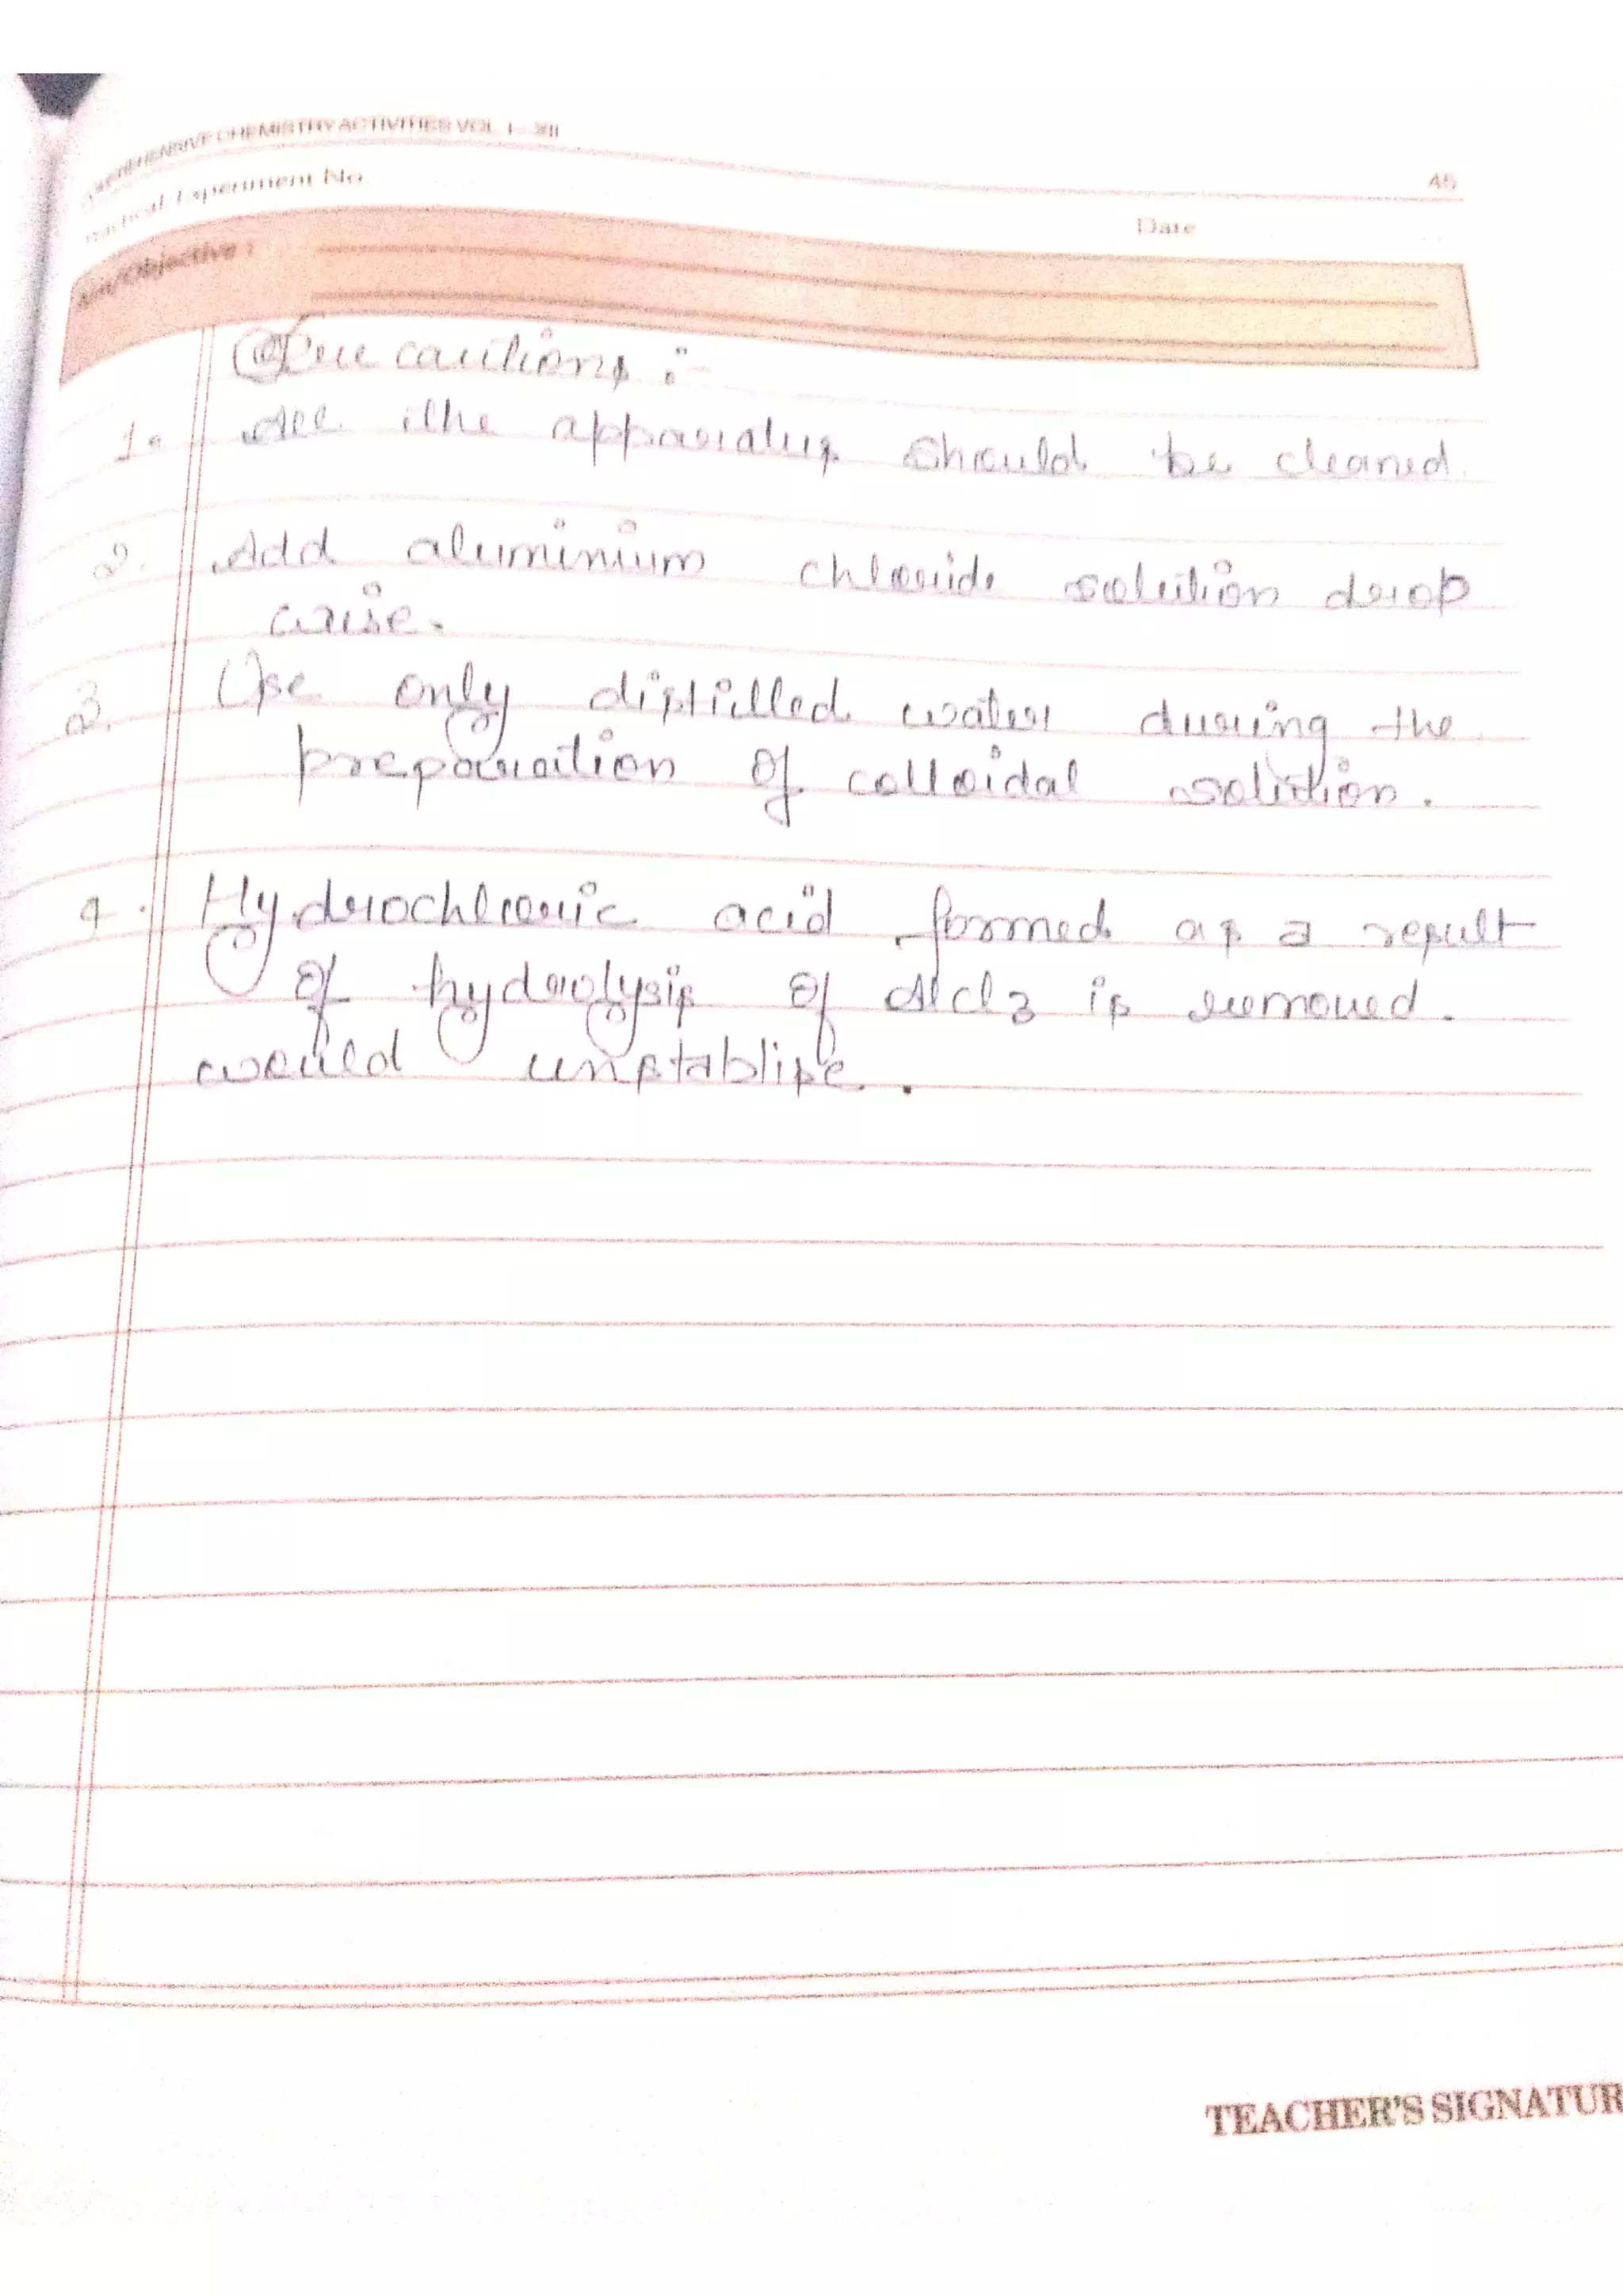 COMPREHENSIVE CHEMISTRY ACTIVITIES VOL. I - XII
45
Practical/Experiment No
Date
Aim/Objective :
Precautions :-
1. All the apparatus should be cleaned
2. Add aluminium chloride solution drop
wise.
3. Use only distilled water during the
preparation of colloidal solution.
4. Hydrochloric acid formed as a result
of hydrolysis of Alcl3 is removed.
would unstablise.
TEACHER'S SIGNATUR